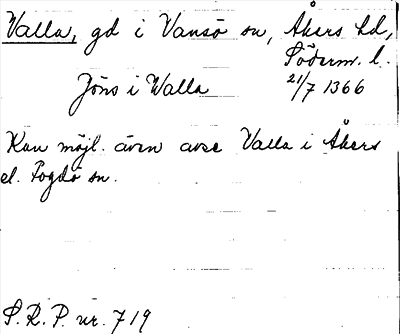 Valla, gd i Vansö sn, Åkers hd,
Söderm. l.
Jöns i Walla 21/7 1366
Kan möjl. även avse Valla i Åkers
el. Fogdö sn.
S. R. P. nr. 719